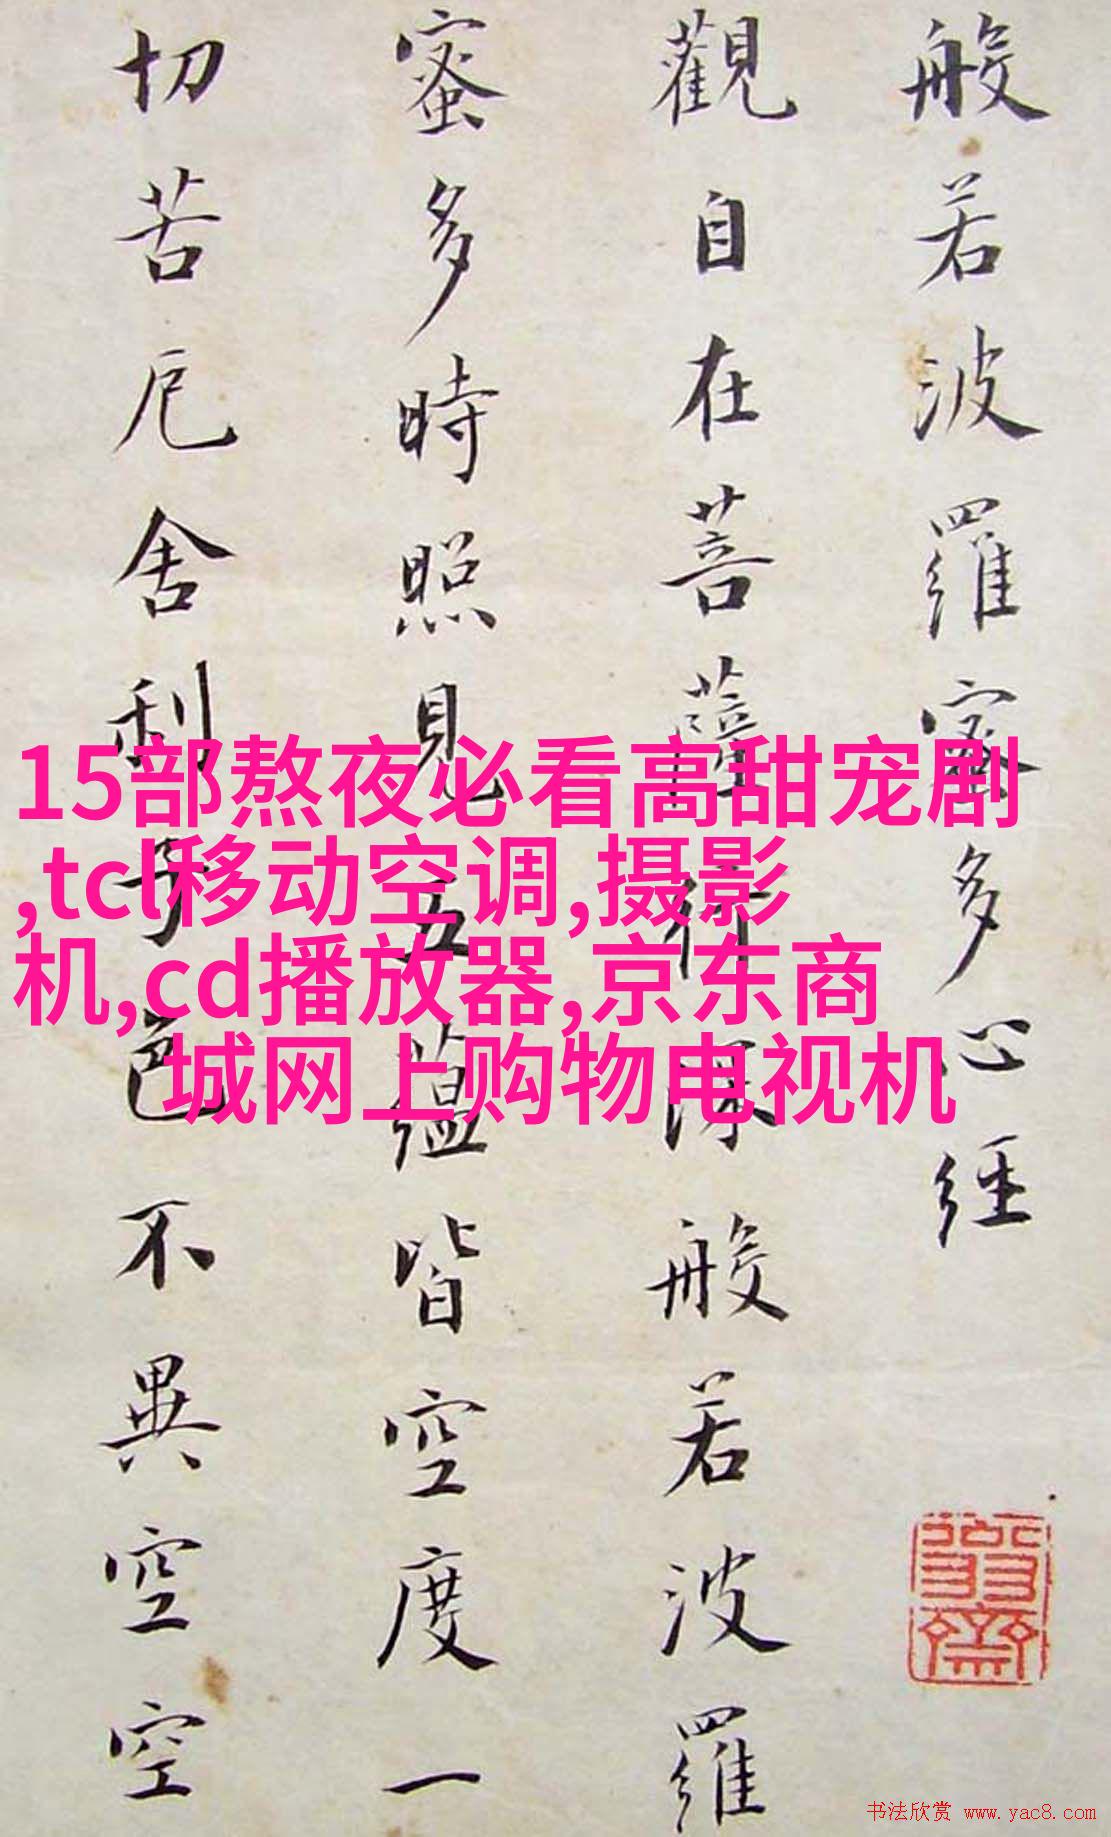 般若波羅蜜多心經
觀自在菩薩行深般若波羅
蜜多時照見五蘊皆空度一
切苦厄舍利子色不異空空
15部熬夜必看高甜宠剧
,tcl移动空调,摄影
机,cd播放器,京东商
城网上购物电视机
书法欣赏 www.yac8.com